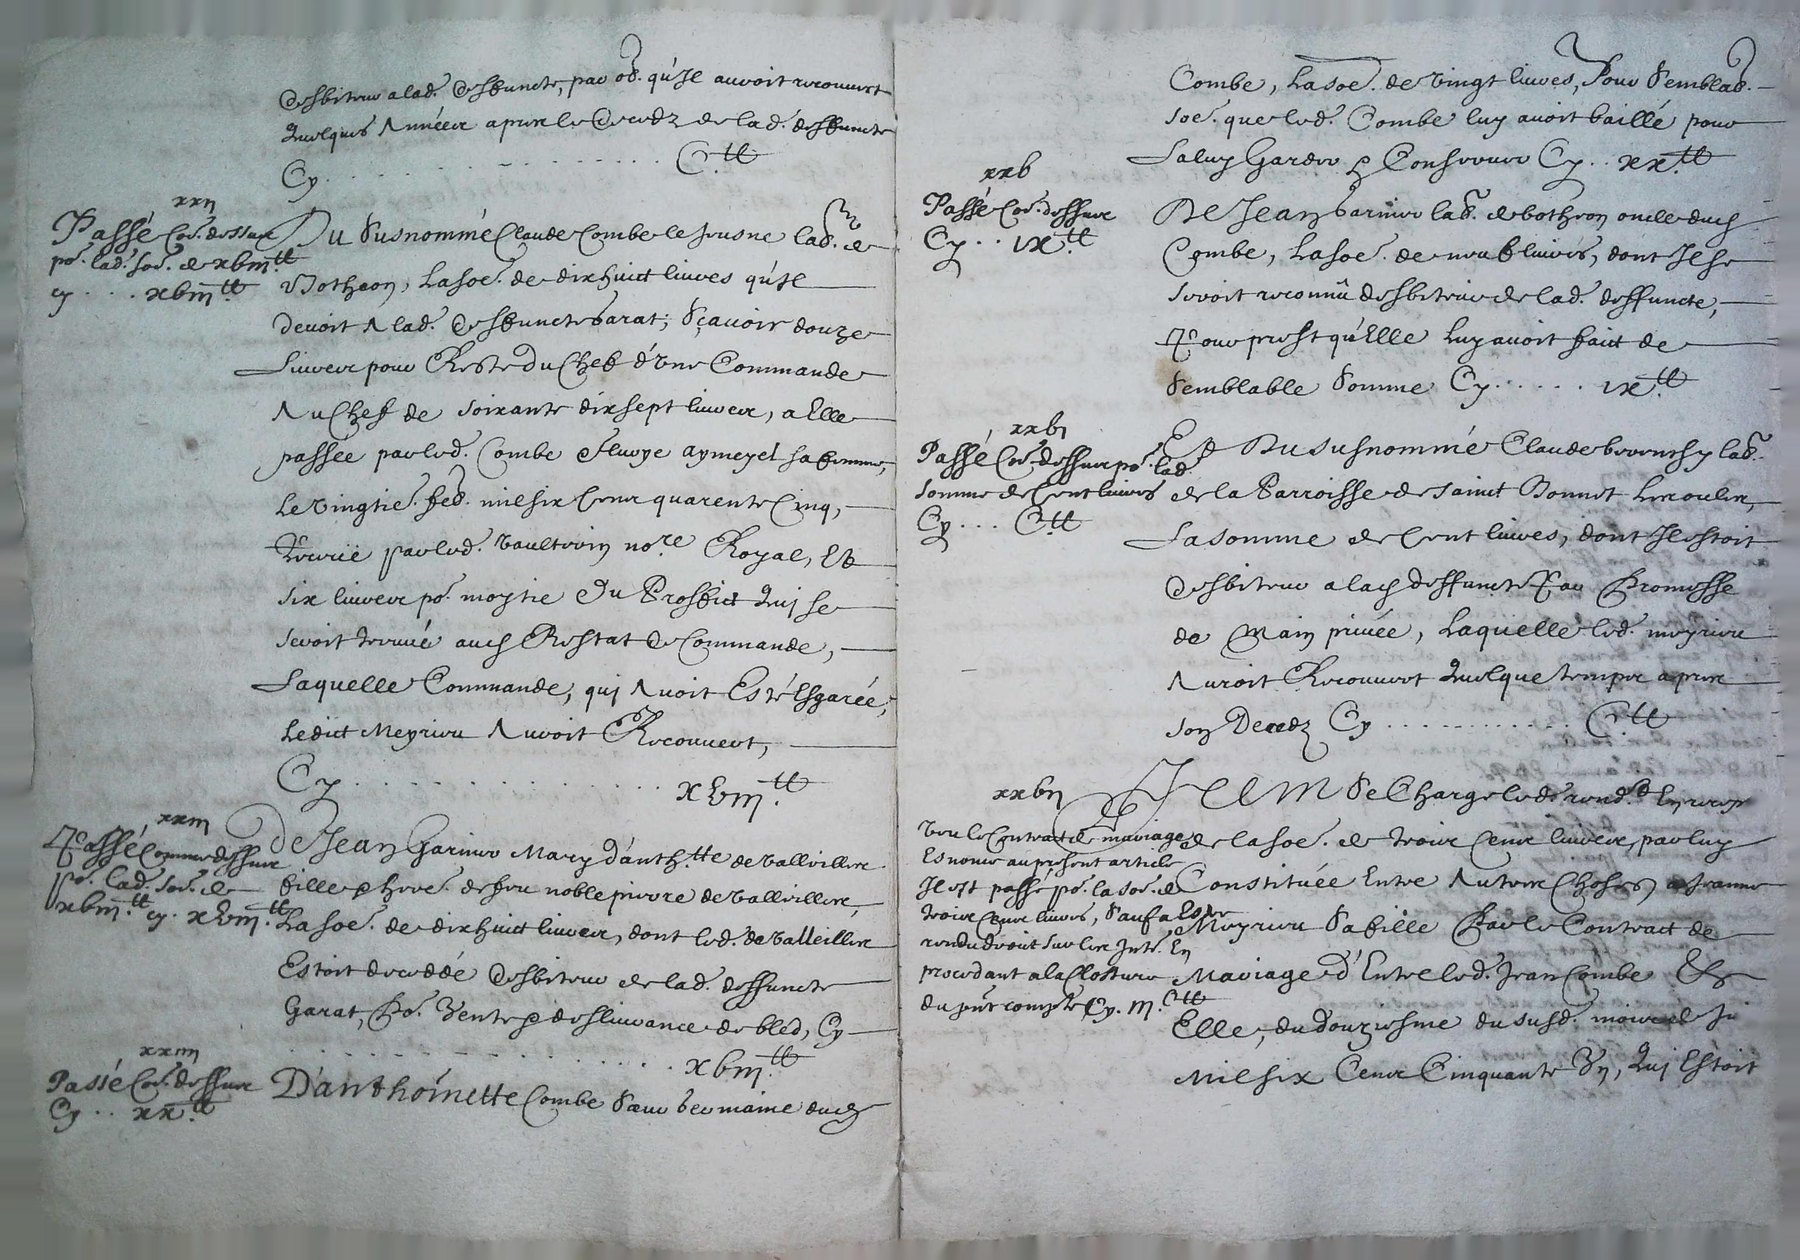 Desbiteur a lad. deffuncte, par ob. qu'Il auroit recouuert
Quelques Années apres le Decedz de lad. deffuncte
Cy . . . . . . . . . C.tt
xxij
Passé Coe. dessus
po. lad. soe. de xviij.tt
cy . . . xviij.tt
Du susnommé Claude Combe le Jeusne lab. de
Botheon, La soe. de dixhuict liures qu'Il
deuoit A lad. deffuncte Garat; Sçauoir douze
Liures pour Reste du Chef d'Vne Commande
Au Chef de soixante dixsept liures, a Elle
passée par led. Combe & aymeyel sa femme,
Le vingtie. feb. mil six Cens quarente Cinq,
Receue par led. no.re Royal, Et
six liures po. moytie du Proffict Qui se
seroit treuué aud. Restat de Commande,
Laquelle Commande, qui Auoit Esté Esgarée,
Ledict Meyrieu Auroit Recouuert,
Cy . . . . . . . . . xviij.tt
xxiij
Passé Comme dessus
po. lad. soe. de
xviij.tt cy. xviij.tt
De Jean Garnier Mary d'anth.tte de Valleilles
fille & here. de feu noble pierre de Valleilles,
La soe. de dixhuict liures, dont led. de Valleilles
Estoit decedé desbiteur de lad. deffuncte
Garat, Po. Vente & desliurance de bled, Cy
. . . . . . . . . xviij.tt
xxiiij
Passé Coe. dessus
Cy . . xx.tt
D'anthoinette Combe Sœur Germaine dud.
Combe, La soe. de vingt liures, Pour Semblab.
soe. que led. Combe luy auoit baillé pour
La luy Garder & Conseruer Cy . . xx.tt
xxv
Passé Coe. dessus
Cy . . ix.tt
De Jean Garnier lab. de botheon oncle dud.
Combe, La soe. de neuf liures, dont Il se
seroit reconnû desbiteur de lad. deffuncte,
Pour prest qu'Elle Luy auoit faict de
semblable Somme Cy . . . . . ix.tt
xxvj
Passé Coe. dessus po. lad.
somme de Cent liures
Cy . . . C.tt
Et Du susnommé Claude lab.
de la Parroisse de sainct Bonnet Les oules,
La somme de Cent liures, dont Il estoit
desbiteur a lad. deffuncte Par Promesse
de Main priuée, Laquelle led. meyrieu
Auroit Recouuert Quelque temps apres
son Decedz Cy . . . . . . . . C.tt
xxvij
Veu le Contract de mariage
Esnoncé au present article
Il est passé po. la soe. de
trois Cens liures, Sauf a Estre
rendu droict sur les Inte. En
procedant a la Closture
du pnt compte Cy. iij.C.tt
ITEM Se Charge led. rend. En
de la soe. de trois Cens liures, par luy
Constituée Entre Autres Choses, a Jeanne
Meyrieu Sa fille Par le Contract de
Mariage d'Entre led. Jean Combe Et
Elle, du douziesme du susd. mois de Ju
Mil six Cens Cinquante Vn, Qui Estoit